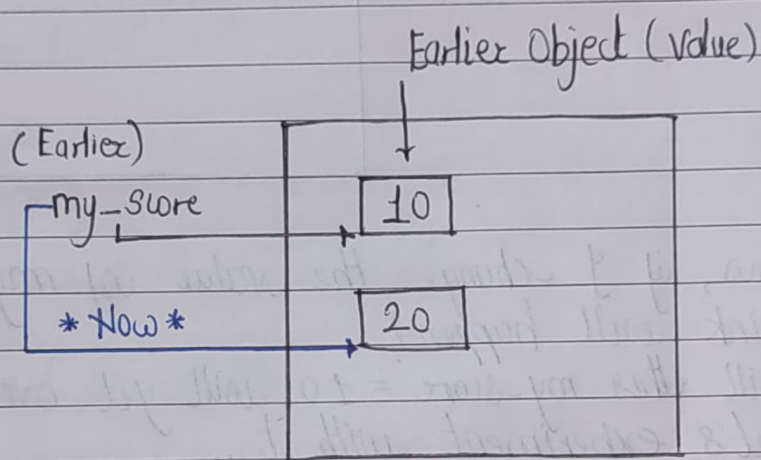 Earlier Object (Value)
(Earlier)
my_score
10
* Now *
20